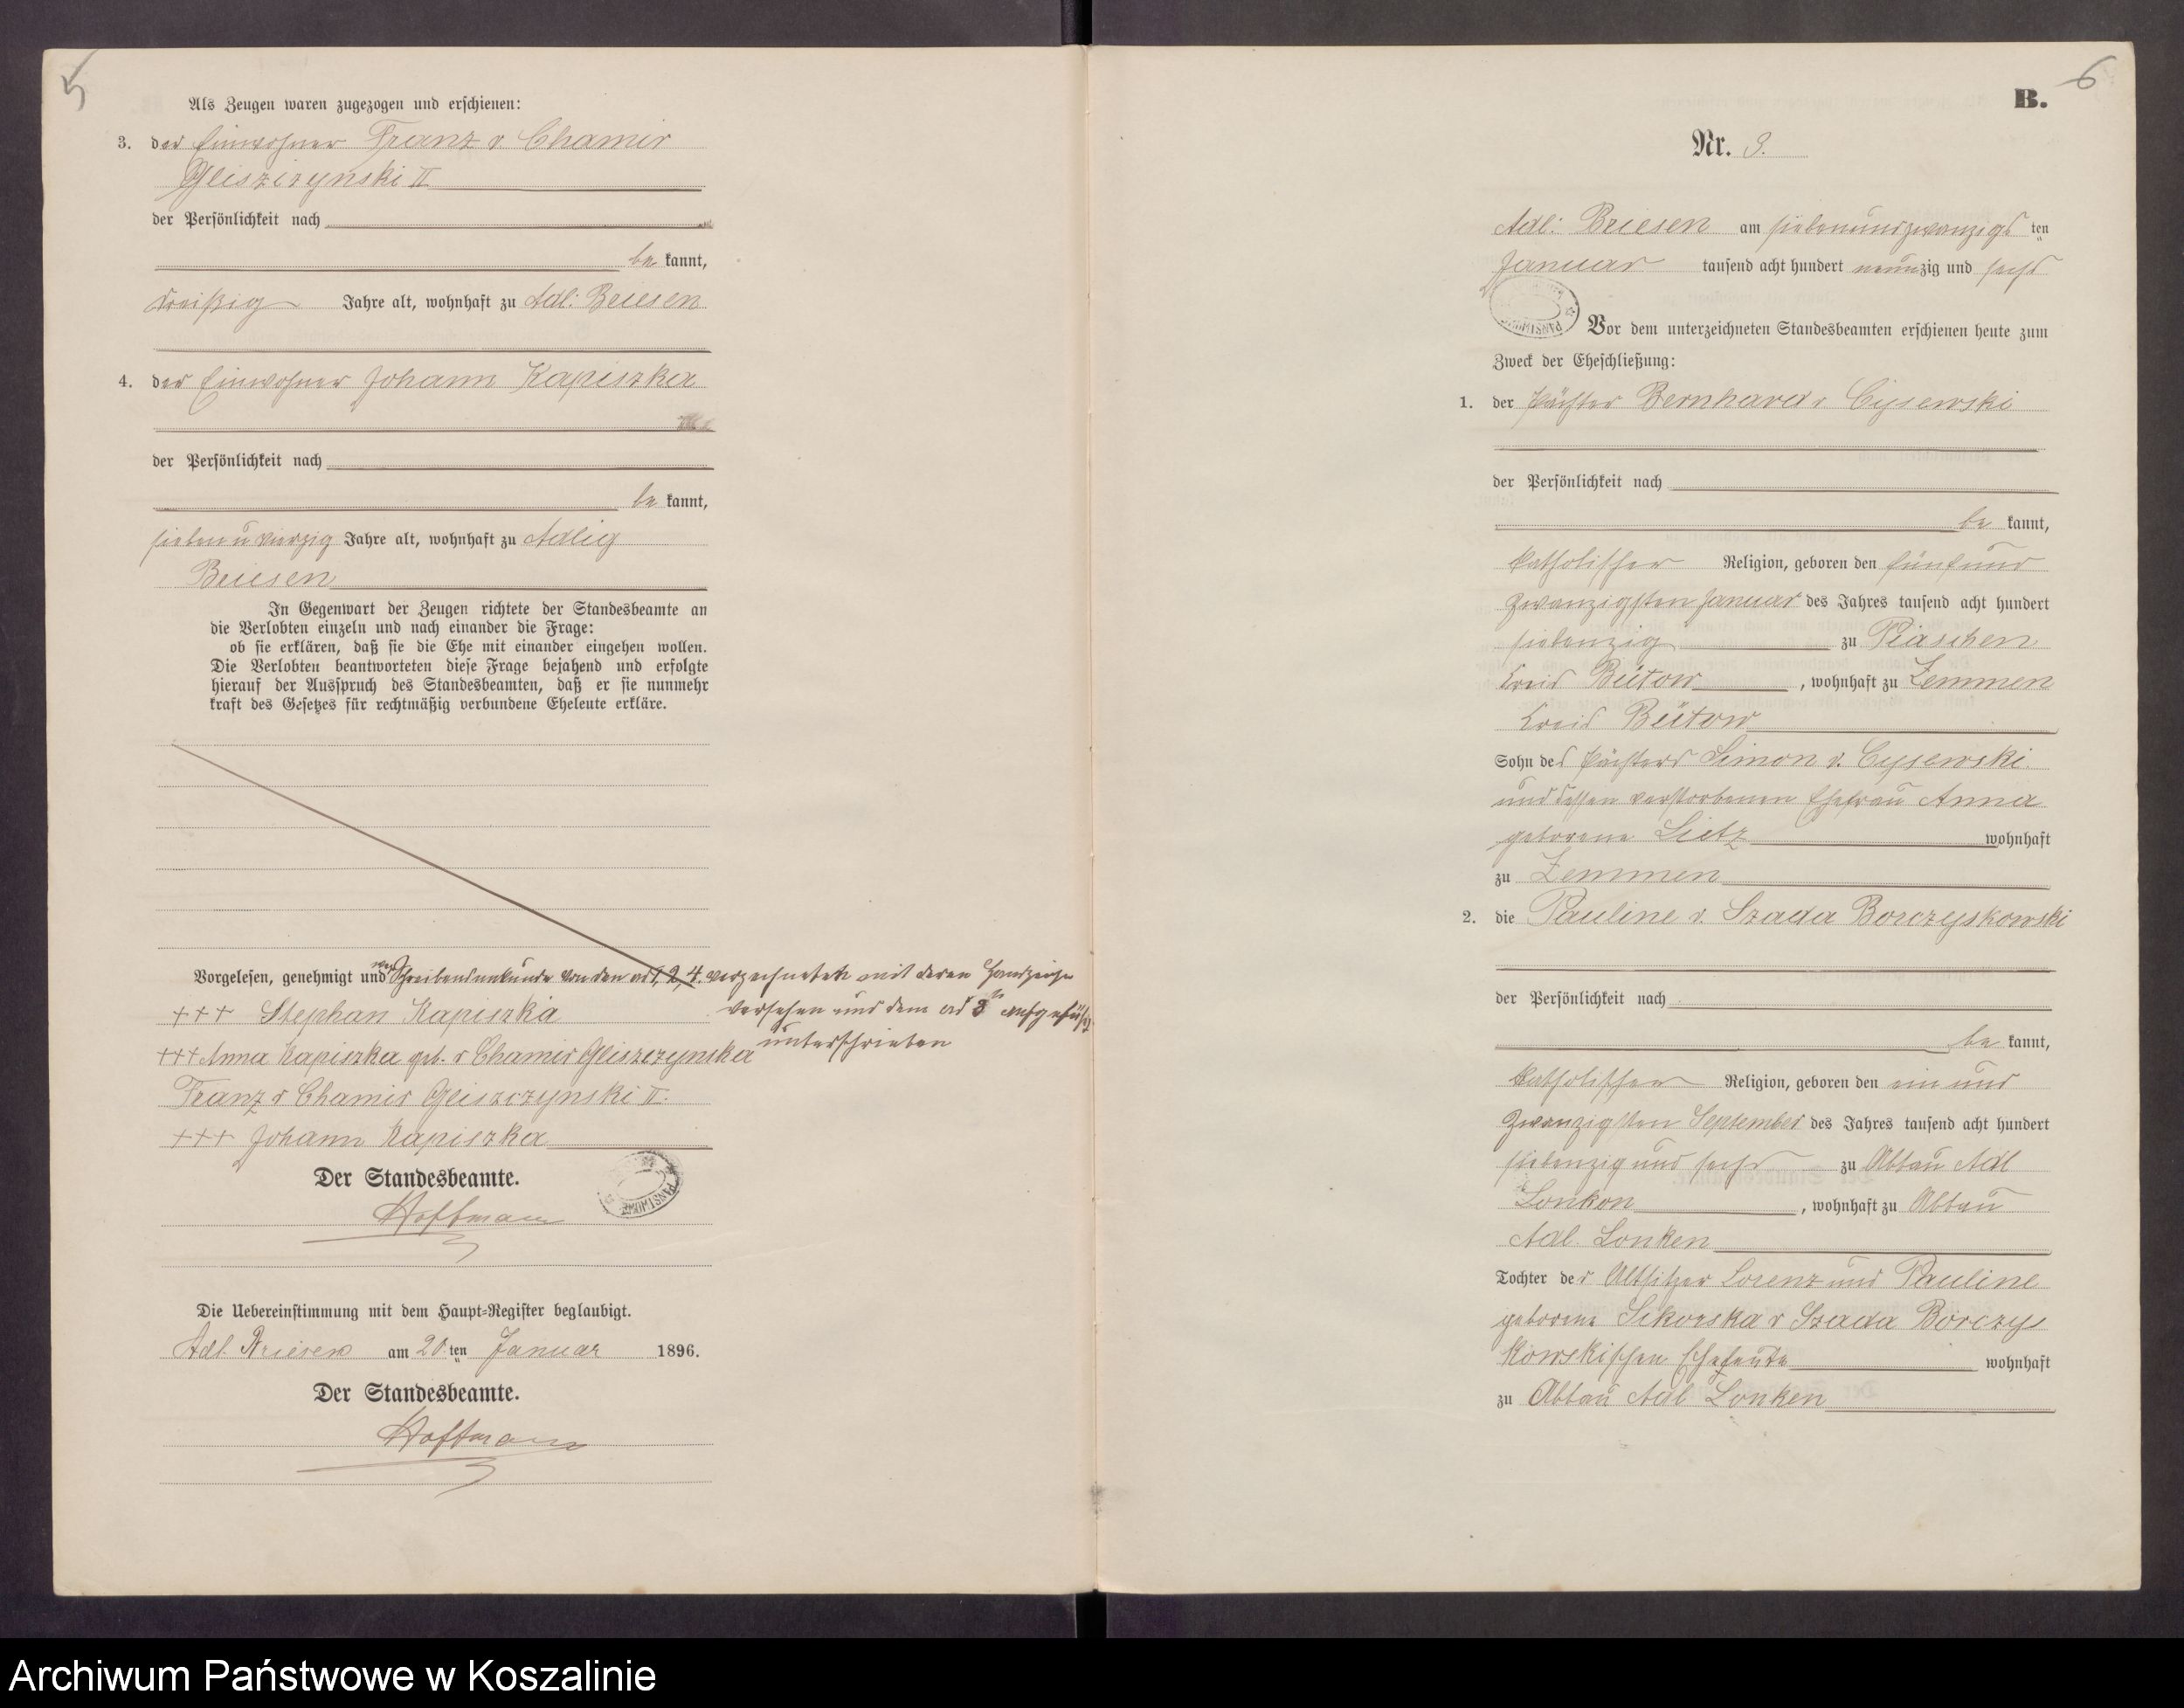 5
Als Zeugen waren zugezogen und erschienen:
3. der Einwohner Franz v Chamir
Gliszczynski II
der Persönlichkeit nach
be kannt,
dreißig Jahre alt, wohnhaft zu Adl: Briesen
4. der Einwohner Johann Kapiszka
der Persönlichkeit nach
be kannt,
sieben u vierzig Jahre alt, wohnhaft zu Adlig
Briesen
In Gegenwart der Zeugen richtete der Standesbeamte an
die Verlobten einzeln und nach einander die Frage:
ob sie erklären, daß sie die Ehe mit einander eingehen wollen.
Die Verlobten beantworteten diese Frage bejahend und erfolgte
hierauf der Ausspruch des Standesbeamten, daß er sie nunmehr
kraft des Gesetzes für rechtmäßig verbundene Eheleute erkläre.
Vorgelesen, genehmigt und wegen Schreibensunkunde von den ad 1, 2, 4. verzeichneten mit deren Handzeichen
versehen und dem ad 3 aufgeführten
unterschrieben
+++ Stephan Kapiszka
+++ Anna Kapiszka geb. v Chamir Gliszczynska
Franz v Chamir Gliszczynski II.
+++ Johann Kapiszka
Der Standesbeamte.
Hoffmann
Die Uebereinstimmung mit dem Haupt-Register beglaubigt.
Adl. Briesen am 20 ten Januar 1896.
Der Standesbeamte.
Hoffmann
6
B.
Nr. 3.
Adl: Briesen am siebenundzwanzigs ten
Januar tausend acht hundert neunzig und sechs
Vor dem unterzeichneten Standesbeamten erschienen heute zum
Zweck der Eheschließung:
1. der Pächter Bernhard v Cysewski
der Persönlichkeit nach
be kannt,
katholischer Religion, geboren den fünfund
zwanzigsten Januar des Jahres tausend acht hundert
siebenzig zu Piaschen
Kreis Bütow, wohnhaft zu Zemmen
Kreis Bütow
Sohn des Pächters Simon v. Cysewski
und dessen verstorbenen Ehefrau Anna
geborene Lietz wohnhaft
zu Zemmen
2. die Pauline v. Szada Borczyskowski
der Persönlichkeit nach
be kannt,
katholischer Religion, geboren den ein und
zwanzigsten September des Jahres tausend acht hundert
siebenzig und sechs zu Abbau Adl
Lonken, wohnhaft zu Abbau
Adl. Lonken
Tochter der Altsitzer Lorenz und Pauline
geborene Sikorska v Szada Borczys
kowskischen Eheleute wohnhaft
zu Abbau Adl Lonken
Archiwum Państwowe w Koszalinie